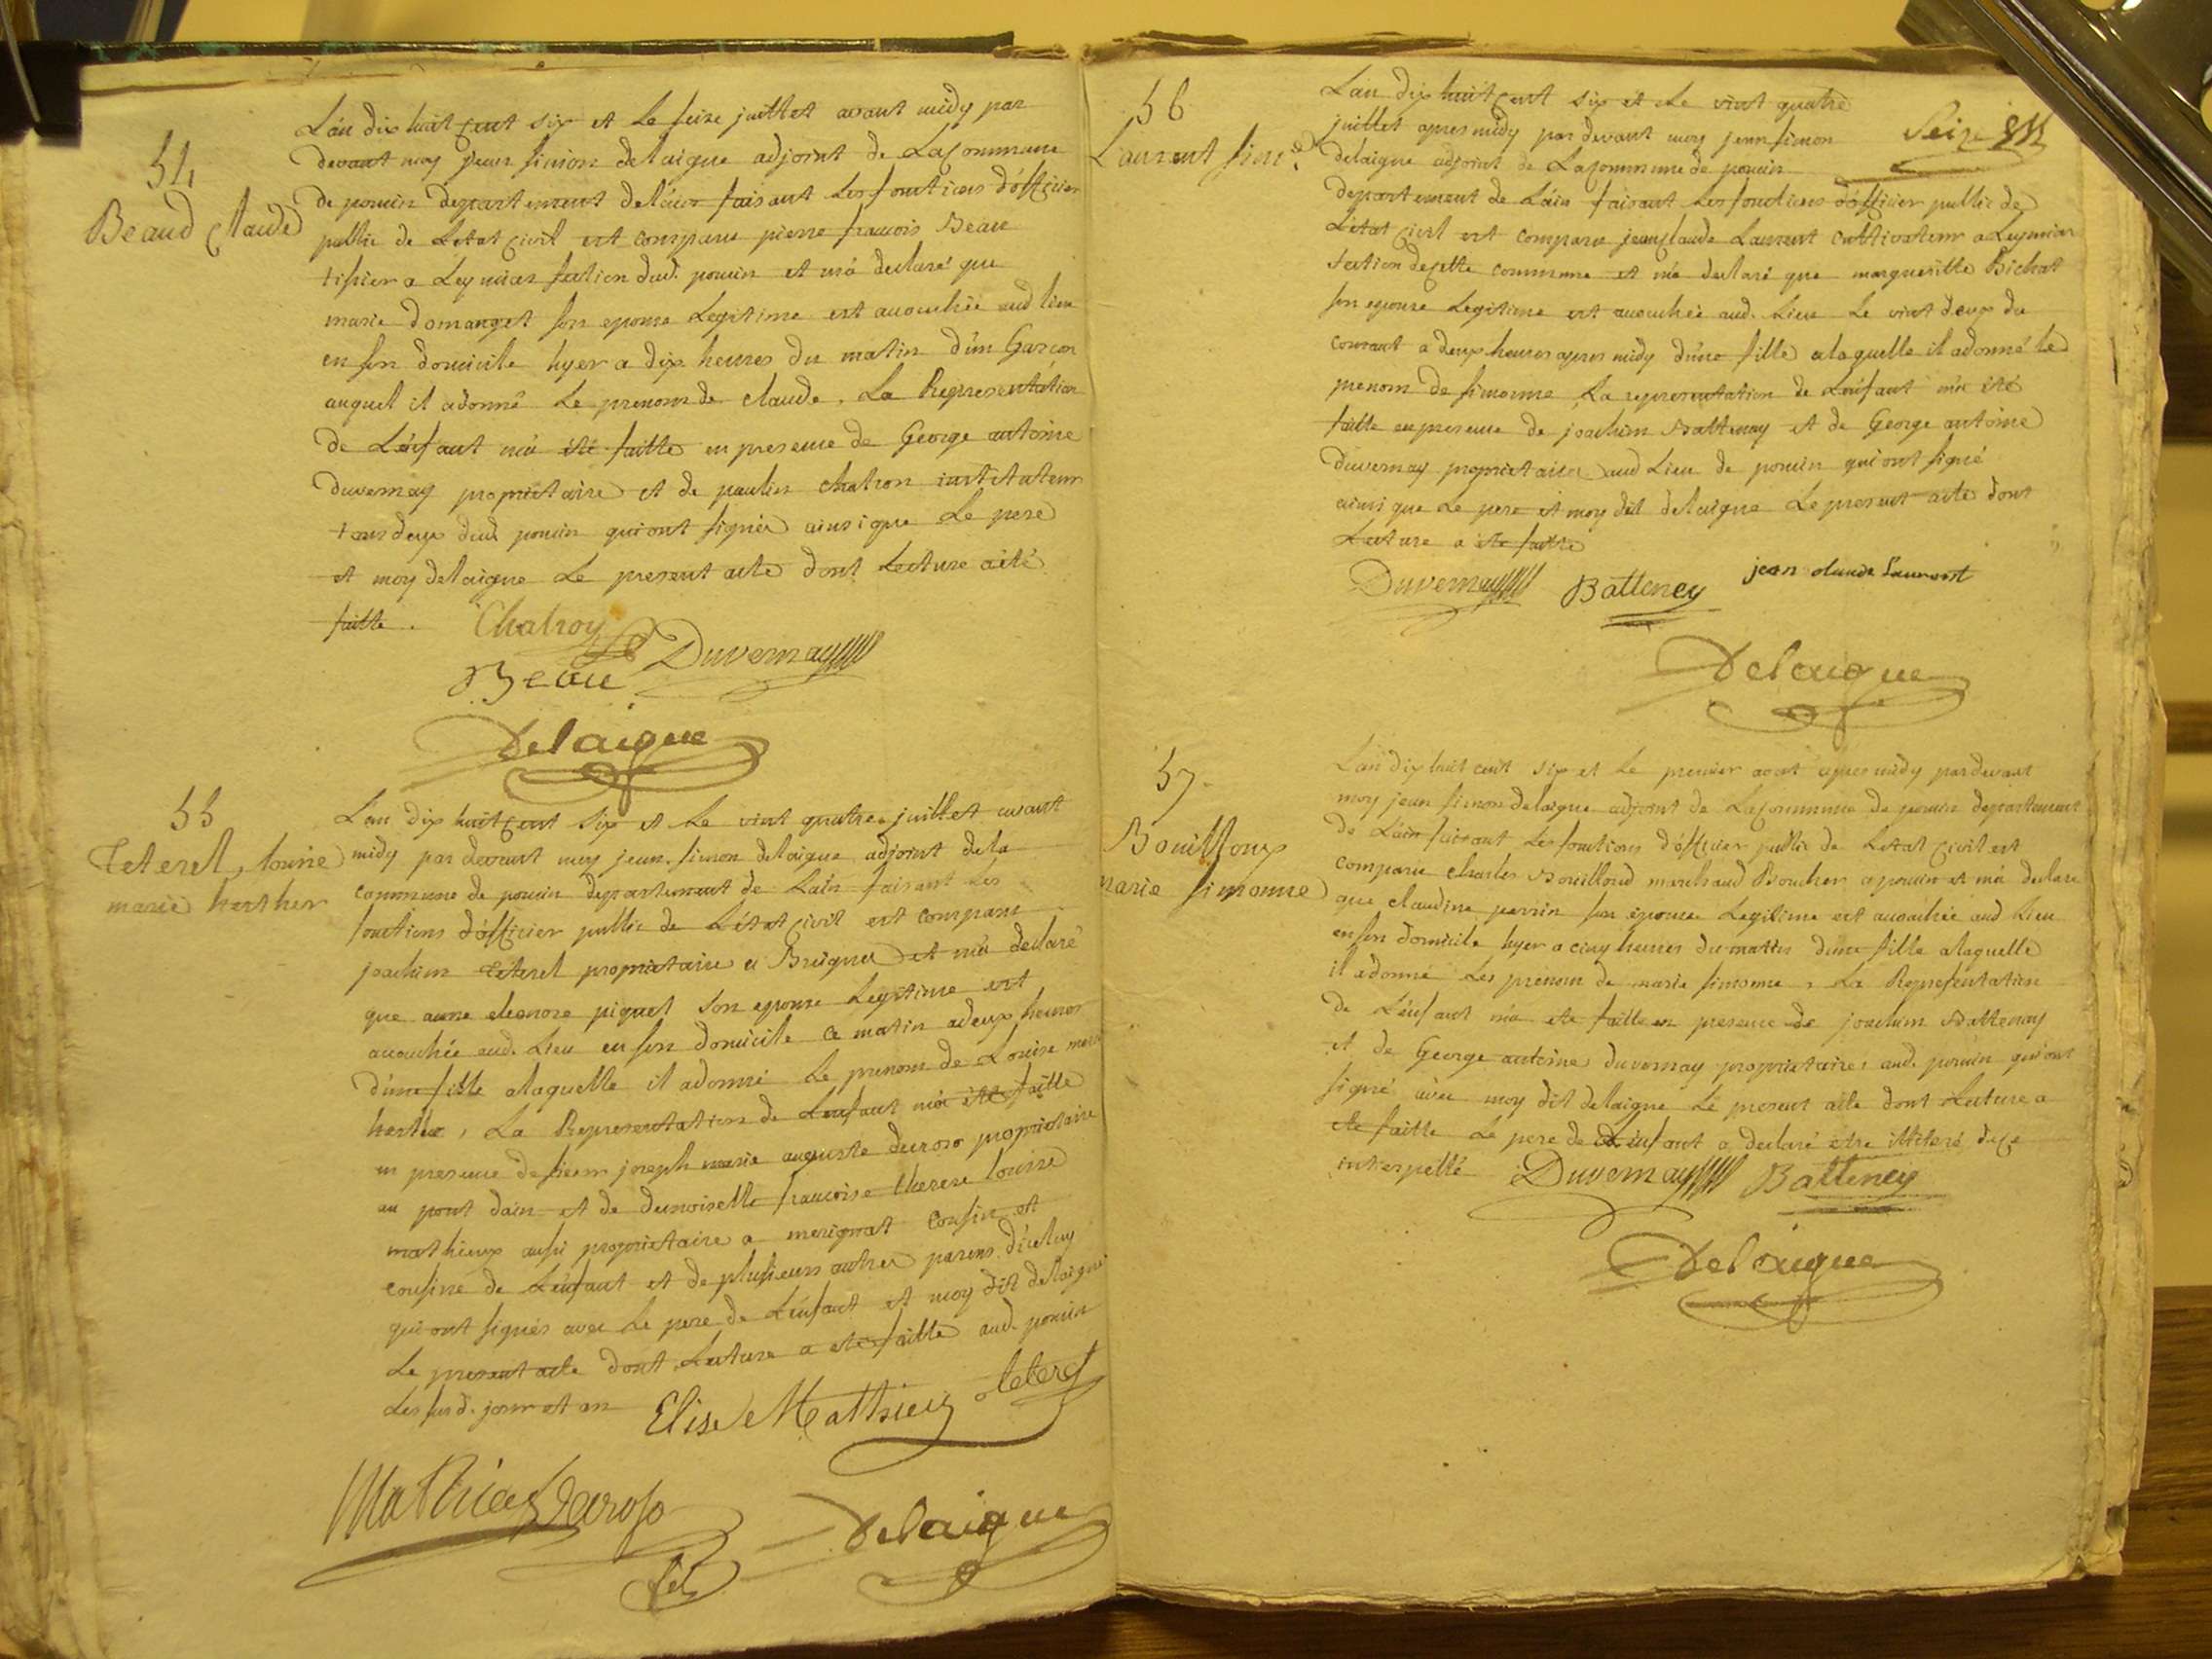 54
Beaud Claude
L'an dix huit cent six et le seize juillet avant midy par
devant moy jean simon delaigue adjoint de La Commune
de poncin departement de l'ain faisant Les fonctions d'officier
public de Letat Civil est comparu pierre francois Beau
tisier a Leymiar section dud. poncin et m'a declaré que
marie domanget son epouse Legitime est accouchée aud lieu
en son domicile hyer a dix heures du matin d'un Garcon
auquel il a donné Le prenom de claude. La Representation
de L'enfant m'a été faitte en presence de George antoine
duvernay proprietaire et de paulin chatron institateur
tous deux dud. poncin qui ont signés ainsi que Le pere
et moy delaigue Le present acte dont Lecture a été
faitte.
Chatron
Duvernay
Beau
Delaigue
55
Teterel, Louise
marie hesther
L'an dix huit cent six et Le vint quatre juillet avant
midy par devant moy jean simon delaigue adjoint de la
commune de poncin departement de Lain faisant Les
fonctions d'officier public de L'état Civil est comparu
joachim teterel proprietaire a Breignes et m'a declaré
que anne eleonore piquet son epouse Legitime est
accouchée aud. Lieu en son domicile ce matin a deux heures
d'une fille a laquelle il a donné Le prenom de Louise marie
hesther, La Representation de Lenfant m'a été faitte
en presence de sieur joseph marie auguste decroso proprietaire
au pont dain et de demoiselle francoise therese louise
mathieux aussi proprietaire a merignat cousin et
cousine de L'enfant et de plusieurs autres parens d'iceluy
qui ont signés avec Le pere de L'enfant et moy dit delaigue
Le present acte dont Lecture a été faitte aud. poncin
Les susd. jour et an
Elise Mathieu
teterel
Mathieu Decroso
Delaigue
56
Laurent sim.e
Seize
L'an dix huit Cent six et Le vint quatre
juillet apres midy par devant moy jean simon
delaigue adjoint de La Commune de poncin
departement de L'ain faisant Les fonctions d'officier public de
L'état Civil est comparu jean claude Laurent cultivateur a Leymiar
section de cette commune et m'a declaré que margueritte Bichat
son epouse Legitime est accouchée aud. Lieu Le vint deux du
courant a deux heures apres midy d'une fille a laquelle il a donné le
prenom de simonne, La representation de L'enfant m'a été
faitte en presence de joachim Battenay et de George antoine
duvernay proprietaires aud Lieu de poncin qui ont signé
ainsi que Le pere et moy dit delaigue Le present acte dont
Lecture a été faitte
Duvernay
Batteney
jean claude Laurent
Delaigue
57.
Bouilloux
marie simonne
L'an dix huit cent six et Le premier aout apres midy par devant
moy jean simon delaigue adjoint de La Commune de poncin departement
de L'ain faisant Les fonctions d'officier public de Letat Civil est
comparu charles Bouilloud marchand Boucher a poncin et m'a declaré
que claudine perrin son épouse Legitime est accouchée aud Lieu
en son domicile hyer a cinq heures du matin d'une fille a laquelle
il a donné Les prenom de marie simonne, La Representation
de L'enfant m'a été faitte en presence de joachim Battenay
et de George antoine duvernay proprietaires aud. poncin qui ont
signé avec moy dit delaigue Le present acte dont Lecture a
été faitte Le pere de L'enfant a declaré etre illiteré de ce
interpellé
Duvernay
Batteney
Delaigue